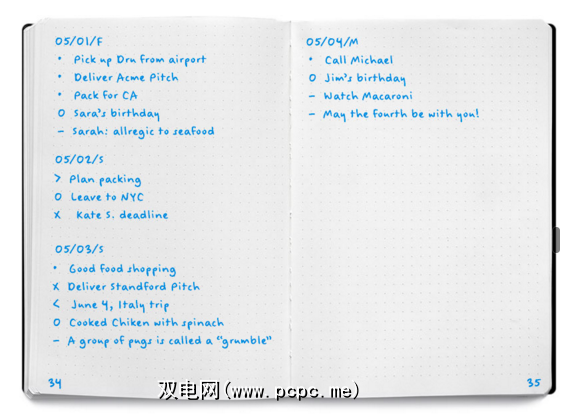 05/01/F
• Pick up Dru from airport
• Deliver Acme Pitch
• Pack for CA
O Sara's birthday
– Sarah: allregic to seafood
05/02/S
> Plan packing
O Leave to NYC
x Kate S. deadline
05/03/S
• Good food shopping
x Deliver Standford Pitch
< June 4, Italy trip
O Cooked Chiken with spinach
– A group of pugs is called a "grumble"
34
05/04/M
• Call Michael
O Jim's birthday
– Watch Macaroni
– May the fourth be with you!
35
双电网(www.pcpc.me)